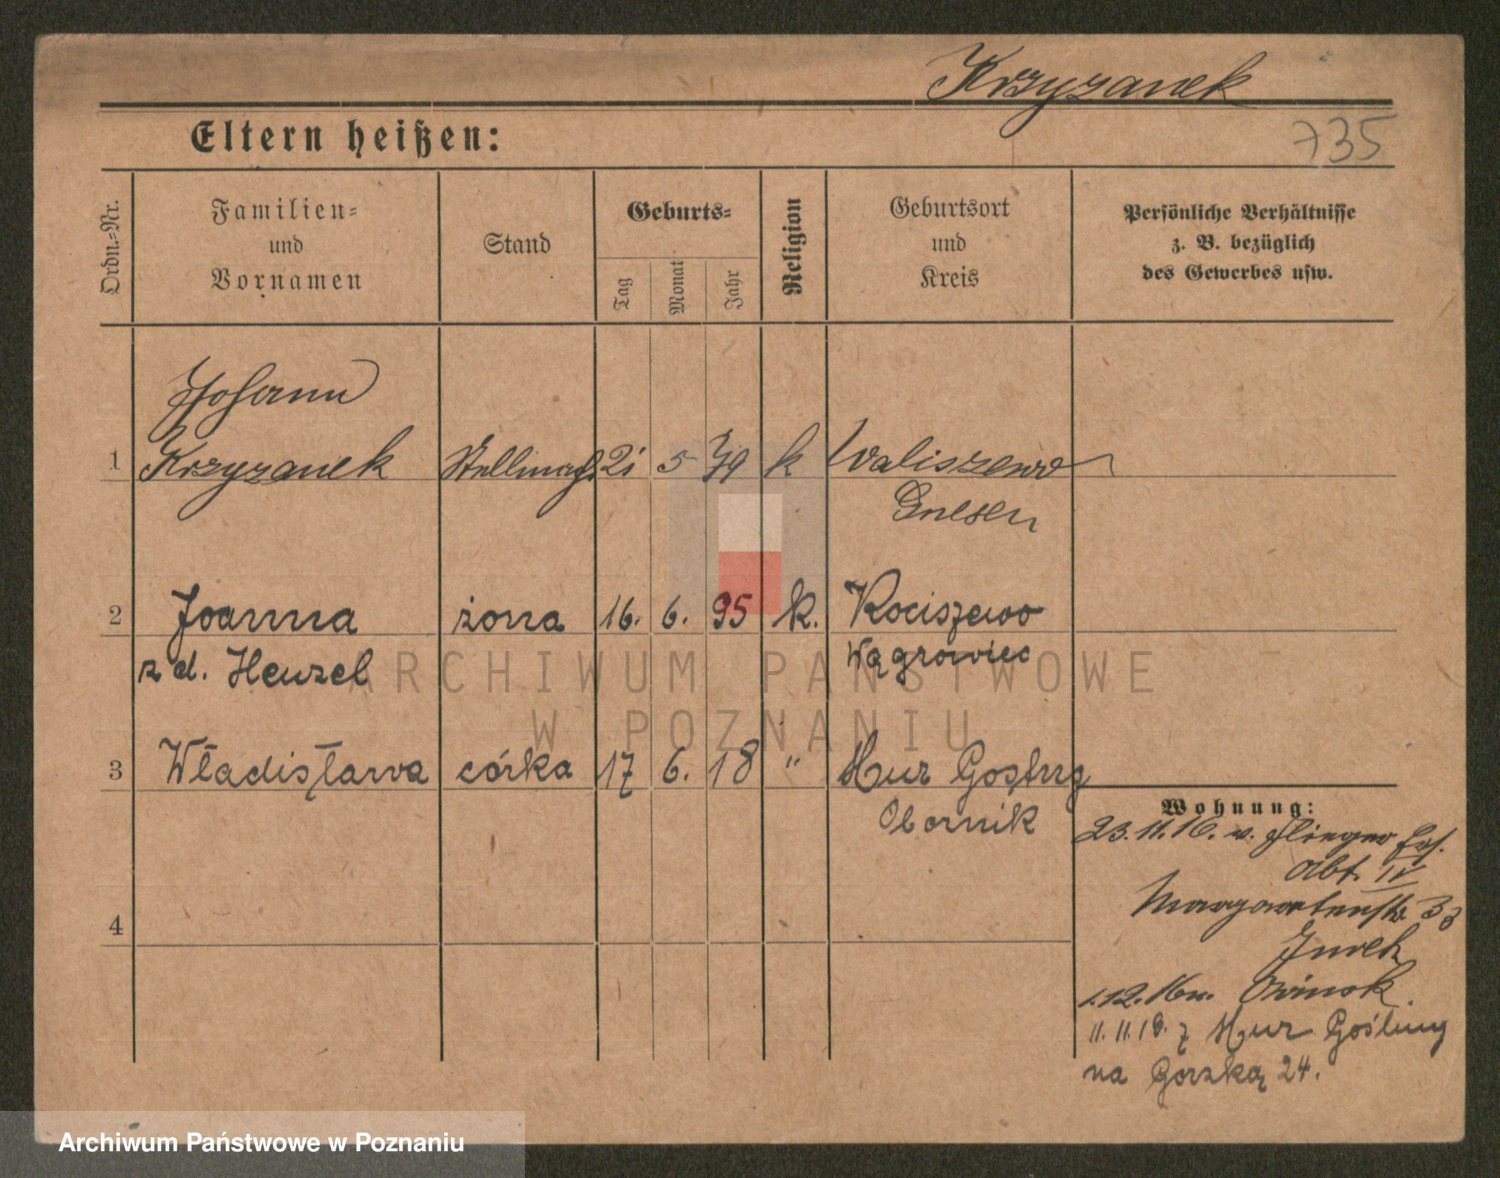 Krzyzanek
Eltern heißen:
735
Ordn.-Nr.
Familien-
und
Vornamen
Stand
Geburts-
Tag
Monat
Jahr
Religion
Geburtsort
und
Kreis
Persönliche Verhältnisse
z. B. bezüglich
des Gewerbes usw.
Johann
1 Krzyzanek Stellmach. 21 5 79 k Waliszewo
Gnesen
2 Joanna żona 16. 6. 95 k. Kociszewo
z d. Henzel Wągrowiec
3 Władisława córka 17 6. 18 " Mur Goślng
Obornik
4
Wohnung:
23.11.16. v. Flieger Ers.
Abt. IV
Margaretenstr. 33
Jurek
1.12.16 n. Owinsk.
11.11.19. z Mur Gośliny
na Górzką 24.
ARCHIWUM PAŃSTWOWE
W POZNANIU
Archiwum Państwowe w Poznaniu